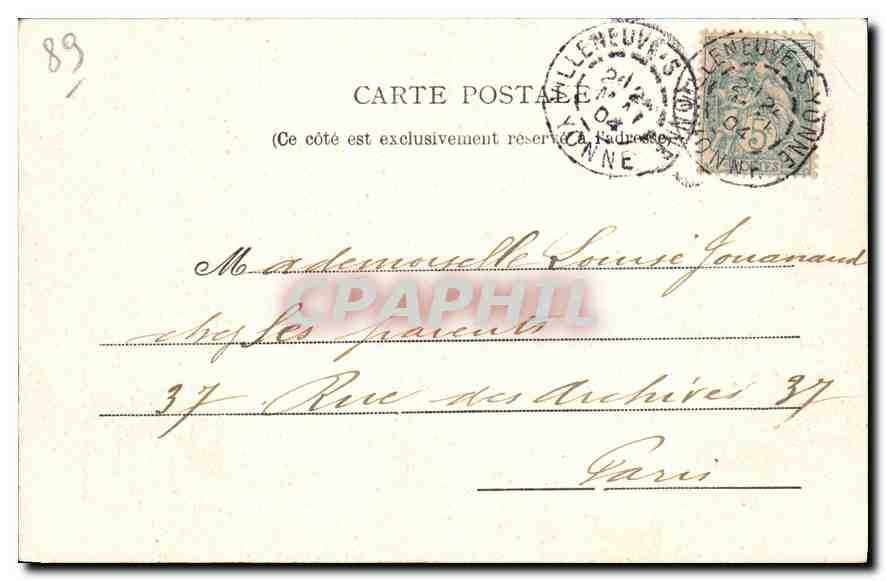 89
CARTE POSTALE
(Ce côté est exclusivement réservé à l'adresse)
VILLENEUVE-S-YONNE
04
YONNE
VILLENEUVE-S-YONNE
04
YONNE
5
Mademoiselle Louise Jouanaud
CPAPHIL
chez ses parents
37 Rue des Archives 37
Paris